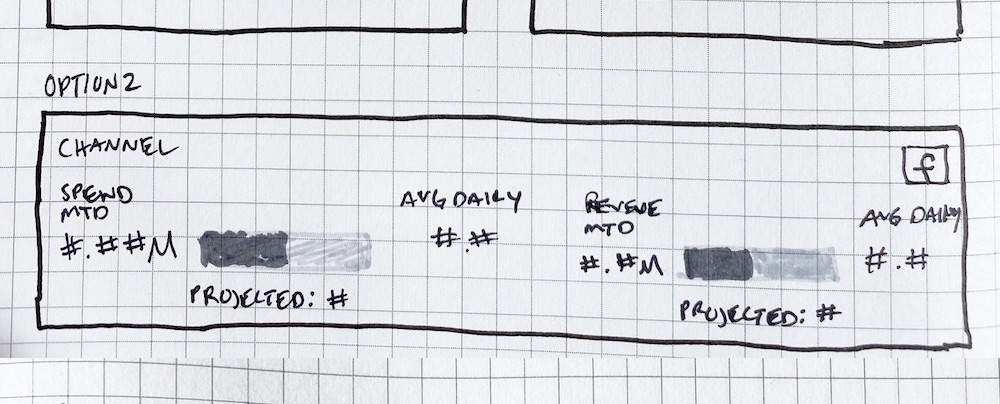 OPTION 2
CHANNEL
f
SPEND
MTD
#.##M
PROJECTED: #
AVG DAILY
#.#
REVENE
MTD
#.#M
PROJECTED: #
AVG DAILY
#.#